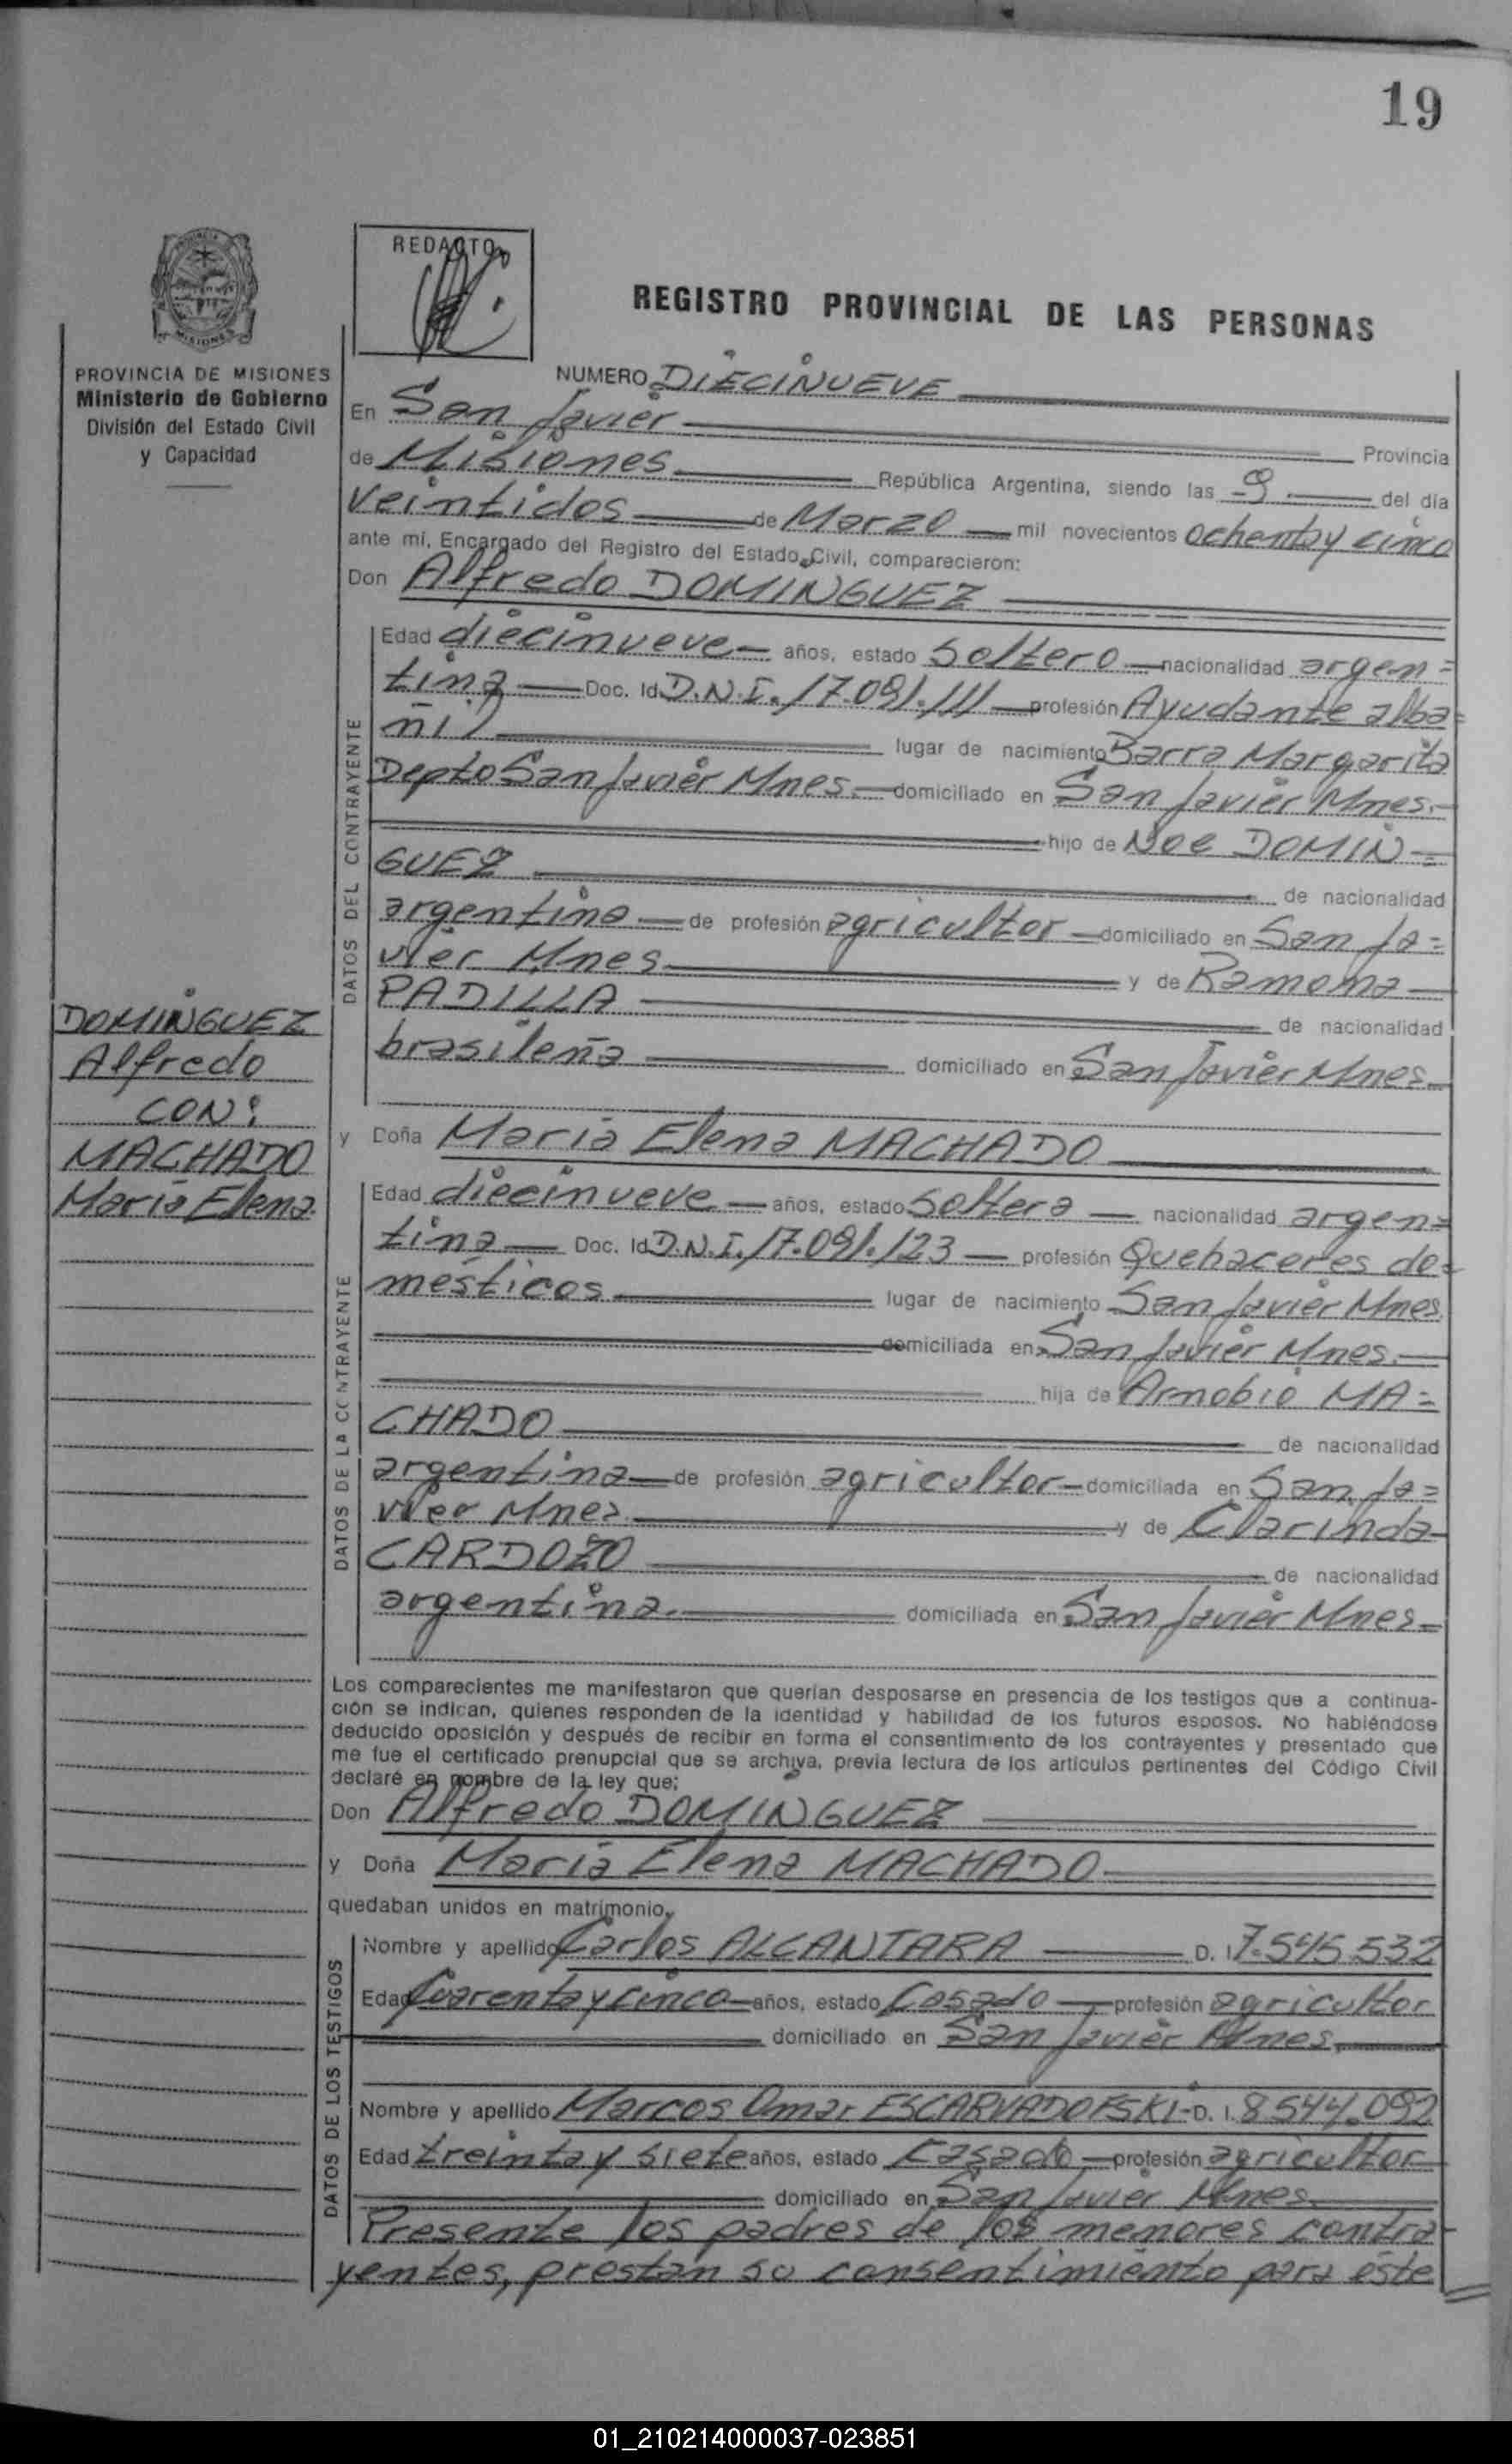 19
REDACTO
REGISTRO PROVINCIAL DE LAS PERSONAS
PROVINCIA DE MISIONES
Ministerio de Gobierno
División del Estado Civil
y Capacidad
NUMERO DIECINUEVE
En San Javier Provincia
de Misiones República Argentina, siendo las 9 del día
veintidos de Marzo mil novecientos ochenta y cinco
ante mí, Encargado del Registro del Estado Civil, comparecieron:
Don Alfredo DOMINGUEZ
DATOS DEL CONTRAYENTE
Edad diecinueve años, estado Soltero nacionalidad argen=
tina Doc. Id D.N.I. 17.091.111 profesión Ayudante alba=
ñil lugar de nacimiento Barra Margarita
Depto San Javier Mnes. domiciliado en San Javier Mnes.
hijo de Noe DOMIN=
GUEZ de nacionalidad
argentina de profesión agricultor domiciliado en San Ja=
vier Mnes y de Ramona
PADILLA de nacionalidad
brasileña domiciliado en San Javier Mnes
DOMINGUEZ
Alfredo
CON:
MACHADO
Maria Elena
y Doña Maria Elena MACHADO
DATOS DE LA CONTRAYENTE
Edad diecinueve años, estado Soltera nacionalidad argen=
tina Doc. Id D.N.I. 17.091.123 profesión Quehaceres do=
mésticos lugar de nacimiento San Javier Mnes
domiciliada en San Javier Mnes.
hija de Arnobio MA=
CHADO de nacionalidad
argentina de profesión agricultor domiciliada en San Ja=
vier Mnes y de Clarinda
CARDOZO de nacionalidad
argentina. domiciliada en San Javier Mnes
Los comparecientes me manifestaron que querían desposarse en presencia de los testigos que a continua-
ción se indican, quienes responden de la identidad y habilidad de los futuros esposos. No habiéndose
deducido oposición y después de recibir en forma el consentimiento de los contrayentes y presentado que
me fue el certificado prenupcial que se archiva, previa lectura de los artículos pertinentes del Código Civil
declaré en nombre de la ley que:
Don Alfredo DOMINGUEZ
y Doña Maria Elena MACHADO
quedaban unidos en matrimonio.
DATOS DE LOS TESTIGOS
Nombre y apellido Carlos ALCANTARA D. I 7.545.532
Edad Cuarenta y cinco años, estado Casado profesión agricultor
domiciliado en San Javier Mnes.
Nombre y apellido Marcos Omar ESCARVADOFSKI D. I. 8.544.092
Edad treinta y siete años, estado Casado profesión agricultor
domiciliado en San Javier Mnes.
Presente los padres de los menores contra-
yentes, prestan su consentimiento para éste
01_210214000037-023851